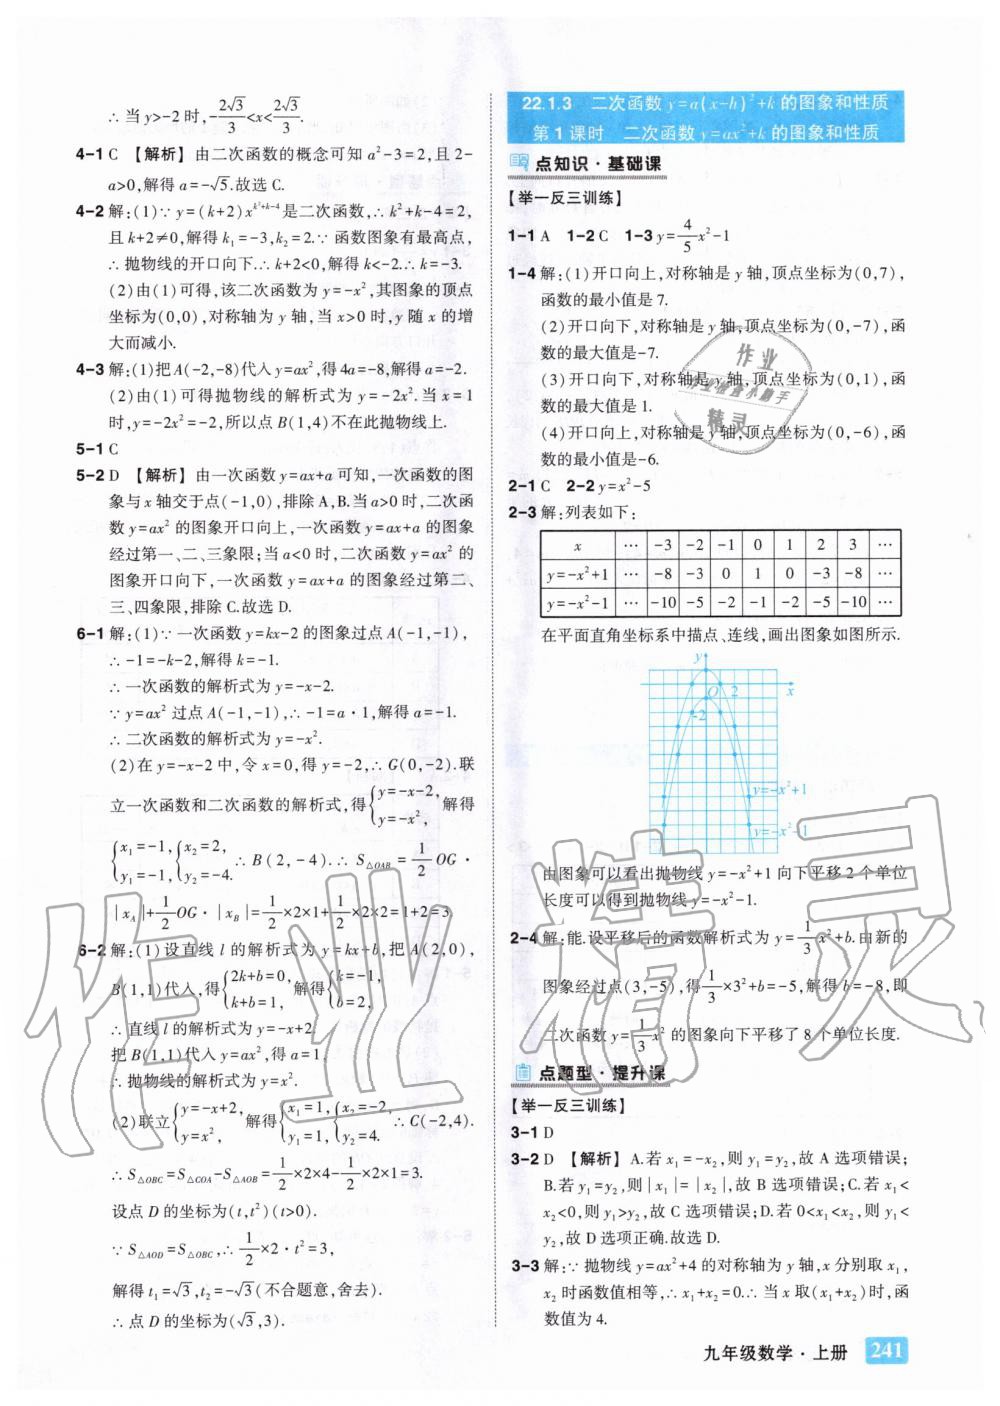 ∴当y>-2时,-2√3/3<x<2√3/3.
4-1 C 【解析】由二次函数的概念可知a²-3=2,且2-
a>0,解得a=-√5.故选C.
4-2 解:(1)∵y=(k+2)x^(k²+k-4)是二次函数,∴k²+k-4=2,
且k+2≠0,解得k₁=-3,k₂=2.∵函数图象有最高点,
∴抛物线的开口向下.∴k+2<0,解得k<-2.∴k=-3.
(2)由(1)可得,该二次函数为y=-x²,其图象的顶点
坐标为(0,0),对称轴为y轴,当x>0时,y随x的增
大而减小.
4-3 解:(1)把A(-2,-8)代入y=ax²,得4a=-8,解得a=-2.
(2)由(1)可得抛物线的解析式为y=-2x².当x=1
时,y=-2x²=-2,所以点B(1,4)不在此抛物线上.
5-1 C
5-2 D 【解析】由一次函数y=ax+a可知,一次函数的图
象与x轴交于点(-1,0),排除A,B.当a>0时,二次函
数y=ax²的图象开口向上,一次函数y=ax+a的图象
经过第一、二、三象限;当a<0时,二次函数y=ax²的
图象开口向下,一次函数y=ax+a的图象经过第二、
三、四象限,排除C.故选D.
6-1 解:(1)∵一次函数y=kx-2的图象过点A(-1,-1),
∴-1=-k-2,解得k=-1.
∴一次函数的解析式为y=-x-2.
∵y=ax²过点A(-1,-1),∴-1=a·1,解得a=-1.
∴二次函数的解析式为y=-x².
(2)在y=-x-2中,令x=0,得y=-2,∴G(0,-2).联
立一次函数和二次函数的解析式,得{y=-x-2, y=-x²,解得
{x₁=-1, y₁=-1, {x₂=2, y₂=-4. ∴B(2,-4).∴S△OAB=1/2 OG·
|x_A|+1/2 OG·|x_B|=1/2×2×1+1/2×2×2=1+2=3.
6-2 解:(1)设直线l的解析式为y=kx+b,把A(2,0),
B(1,1)代入,得{2k+b=0, k+b=1, 解得{k=-1, b=2,
∴直线l的解析式为y=-x+2.
把B(1,1)代入y=ax²,得a=1.
∴抛物线的解析式为y=x².
(2)联立{y=-x+2, y=x², 解得{x₁=1, y₁=1, {x₂=-2, y₂=4. ∴C(-2,4).
∴S△OBC=S△COA-S△AOB=1/2×2×4-1/2×2×1=3.
设点D的坐标为(t,t²)(t>0).
∵S△AOD=S△OBC,∴1/2×2·t²=3,
解得t₁=√3,t₂=-√3(不合题意,舍去).
∴点D的坐标为(√3,3).
22.1.3 二次函数y=a(x-h)²+k的图象和性质
第1课时 二次函数y=ax²+k的图象和性质
点知识·基础课
【举一反三训练】
1-1 A 1-2 C 1-3 y=4/5x²-1
1-4 解:(1)开口向上,对称轴是y轴,顶点坐标为(0,7),
函数的最小值是7.
(2)开口向下,对称轴是y轴,顶点坐标为(0,-7),函
数的最大值是-7.
(3)开口向下,对称轴是y轴,顶点坐标为(0,1),函
数的最大值是1.
(4)开口向上,对称轴是y轴,顶点坐标为(0,-6),函
数的最小值是-6.
2-1 C 2-2 y=x²-5
2-3 解:列表如下:
x … -3 -2 -1 0 1 2 3 …
y=-x²+1 … -8 -3 0 1 0 -3 -8 …
y=-x²-1 … -10 -5 -2 -1 -2 -5 -10 …
在平面直角坐标系中描点、连线,画出图象如图所示.
y
O 2 x
-2
y=-x²+1
y=-x²-1
由图象可以看出抛物线y=-x²+1向下平移2个单位
长度可以得到抛物线y=-x²-1.
2-4 解:能.设平移后的函数解析式为y=1/3x²+b.由新的
图象经过点(3,-5),得1/3×3²+b=-5,解得b=-8,即
二次函数y=1/3x²的图象向下平移了8个单位长度.
点题型·提升课
【举一反三训练】
3-1 D
3-2 D 【解析】A.若x₁=-x₂,则y₁=y₂,故A选项错误;
B.若y₁=y₂,则|x₁|=|x₂|,故B选项错误;C.若x₁<
x₂<0,则y₁>y₂,故C选项错误;D.若0<x₁<x₂,则y₁<
y₂,故D选项正确.故选D.
3-3 解:∵抛物线y=ax²+4的对称轴为y轴,x分别取x₁,
x₂时函数值相等,∴x₁+x₂=0.∴当x取(x₁+x₂)时,函
数值为4.
九年级数学·上册 241
作业精灵
作业
作业检查小助手
精灵